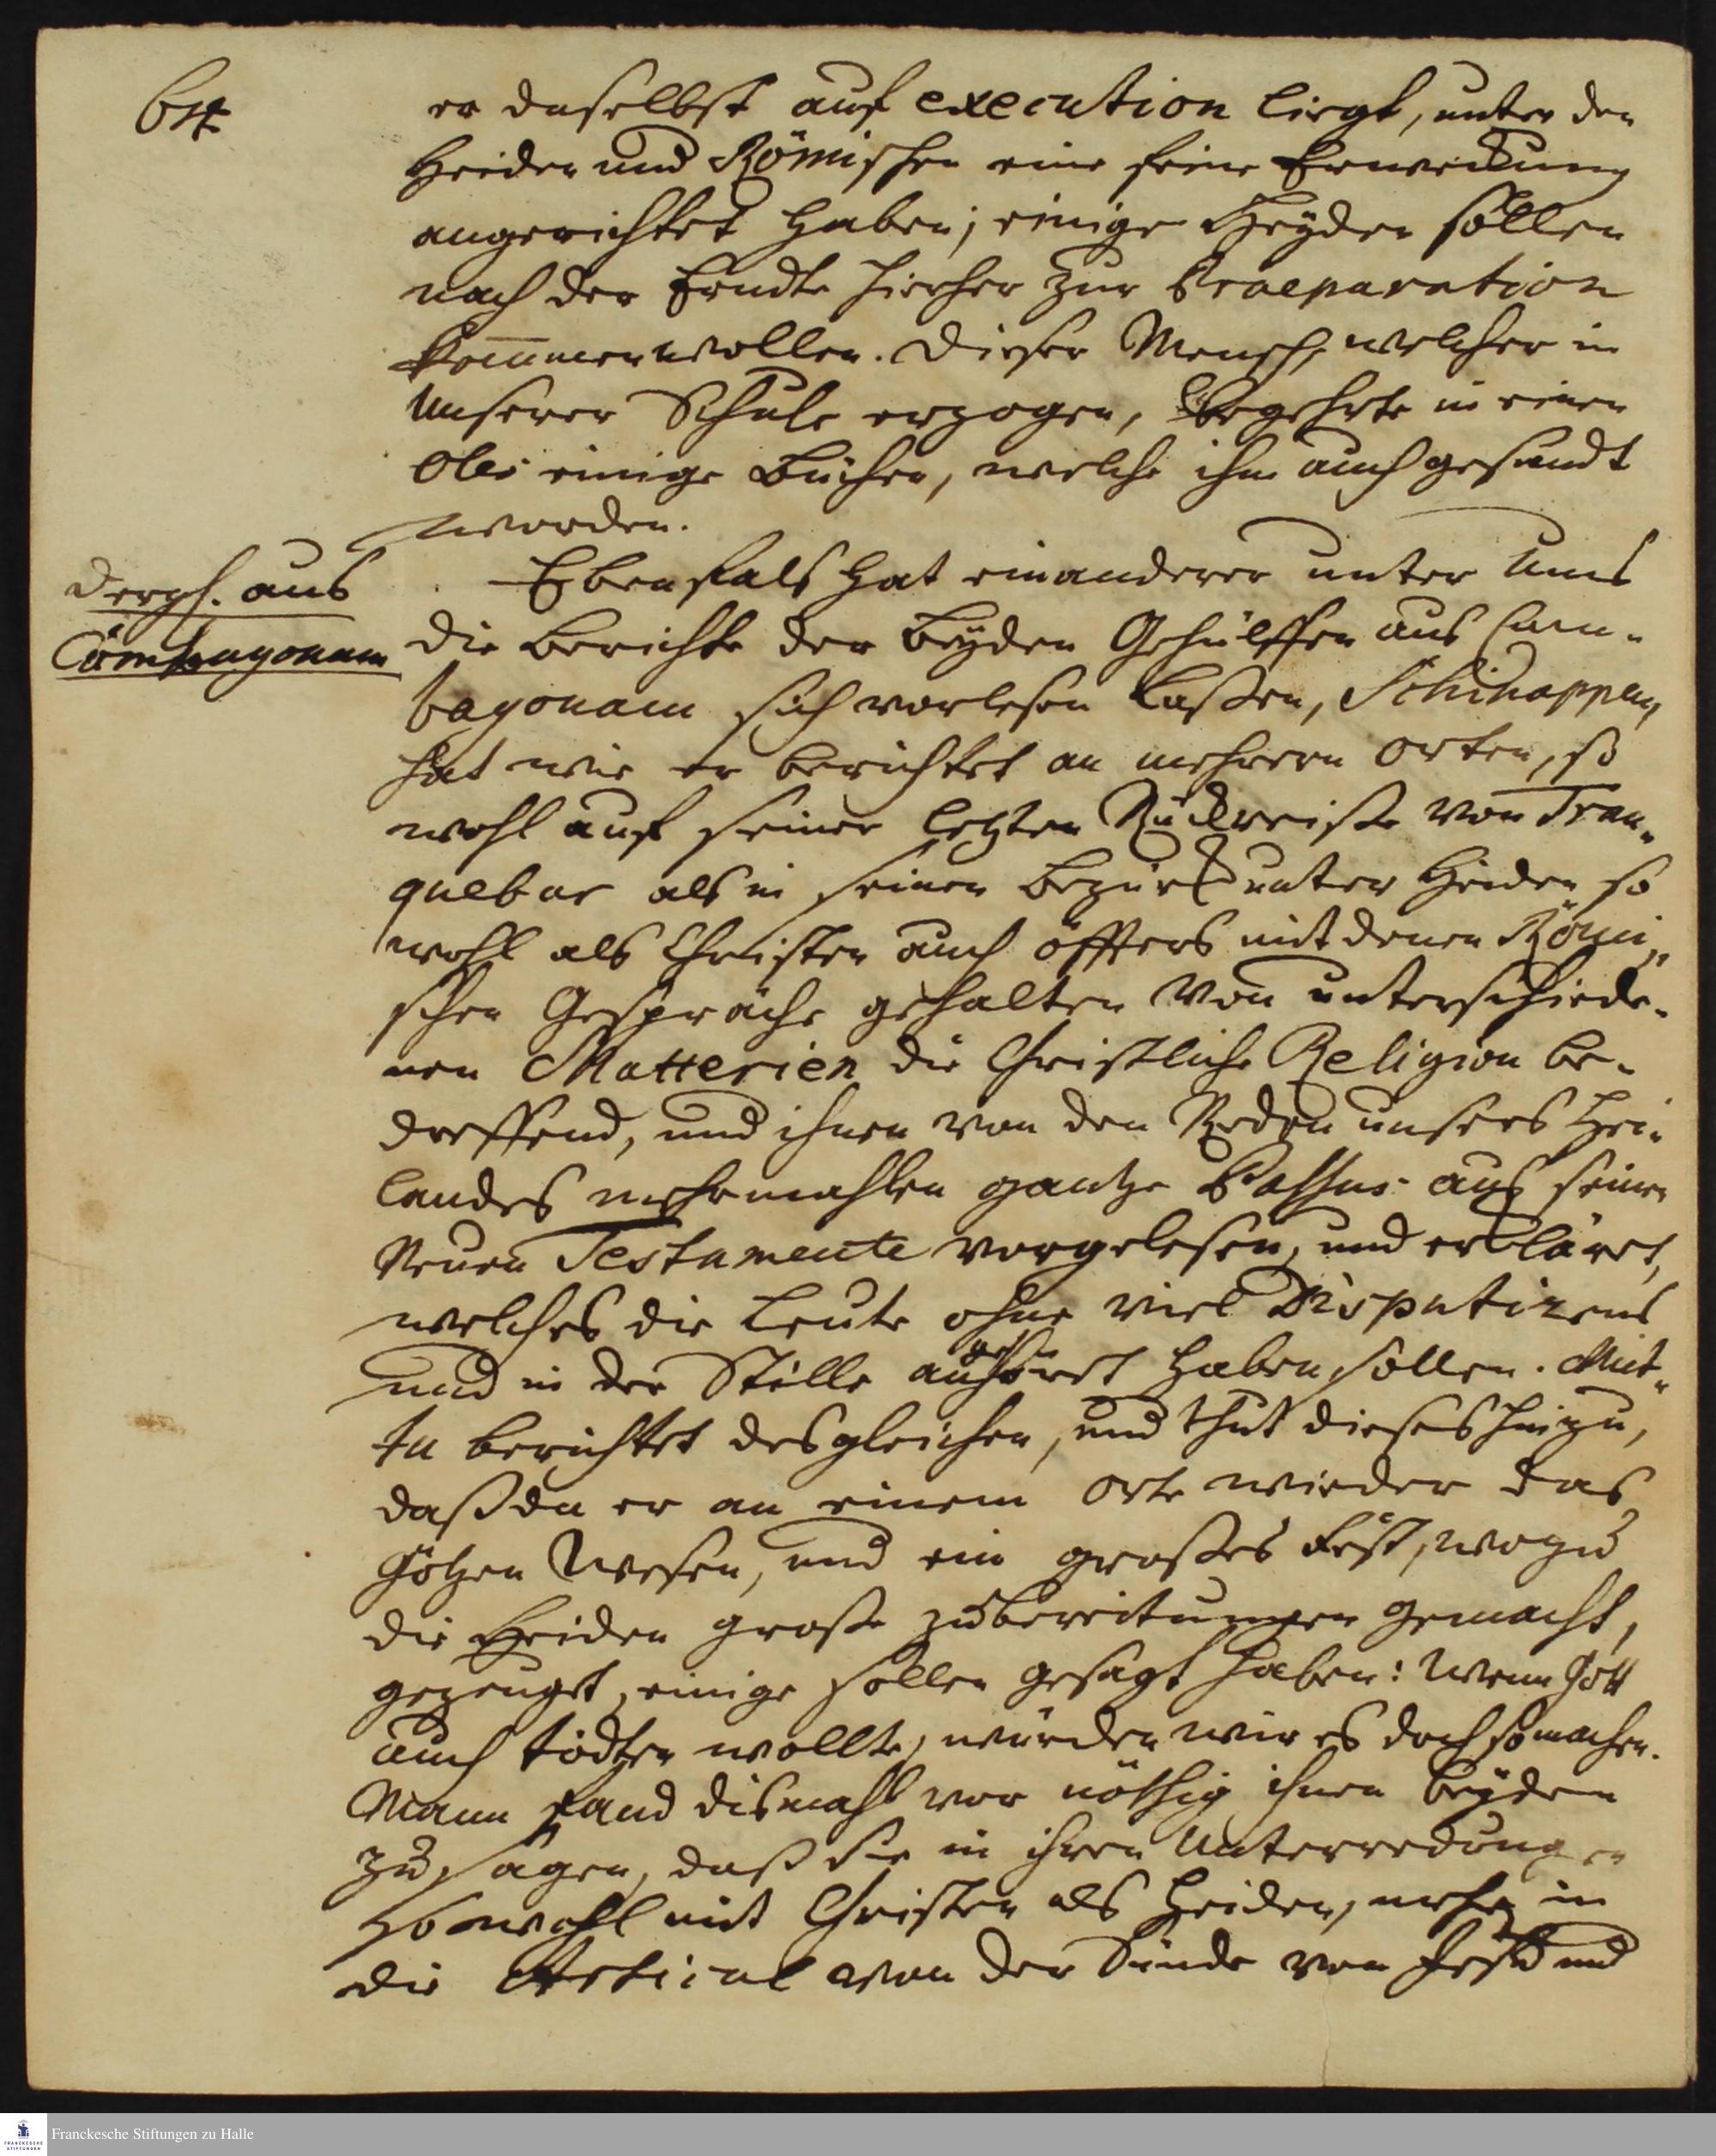 64
er daselbst auf execution liegt, unter den
Heiden und Römischen eine feine Erweckung
angerichtet haben; einige Heyden sollen
nach der Erndte hierher zur Praeparation
kommen wollen. Dieser Mensch, welcher in
unserer Schule erzogen, begehrte in einen
Olei einige Bücher, welche ihm auch gesandt
worden.
dergl. aus
Combagonam
Ebenfals hat ein anderer unter uns
die Berichte der beyden Gehülffen aus Cum-
bagonam sich vorlesen laßen, Schinappen
hat wie er berichtet an mehrern Orten, so
wohl auf seiner letzten Rückreise von Tran-
quebar als in seinen Bezürk unter Heiden so
wohl als Christen auch öffters mit denen Römi-
schen Gespräche gehalten von unterschiede-
nen Matterien die Christliche Religion be-
dreffend, und ihnen von den Reden unsers Hei-
landes mehrmahlen gantze Passus aus seinen
Neuen Testamente vorgelesen, und erkläret,
welches die Leute ohne viel Disputirens
und in der Stille angehöret haben sollen. Mut-
tu berichtet desgleichen, und thut dieses hinzu,
daß da er an einem Orte wieder das
Götzen Wesen, und ein großes Fest, wozu
die Heiden große Zubereitungen gemacht,
gezeuget, einige sollen gesagt haben: Wenn Gott
auch tödten wollte, würden wir es doch so machen.
Mann fand dismahl vor nöthig ihnen beyden
zu sagen, daß sie in ihren Unterredungen
so wohl mit Christen als Heiden, mehr in
die Articul von der Sünde von Jesu und
Franckesche Stiftungen zu Halle